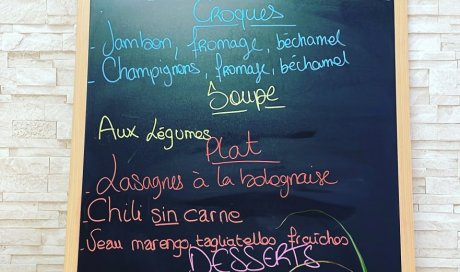 Croques
- Jambon, fromage, béchamel
- Champignons, fromage, béchamel
Soupe
Aux Légumes
Plat
- Lasagnes à la bolognaise
- Chili sin carne
- Veau marengo, tagliatelles fraîches
DESSERTS